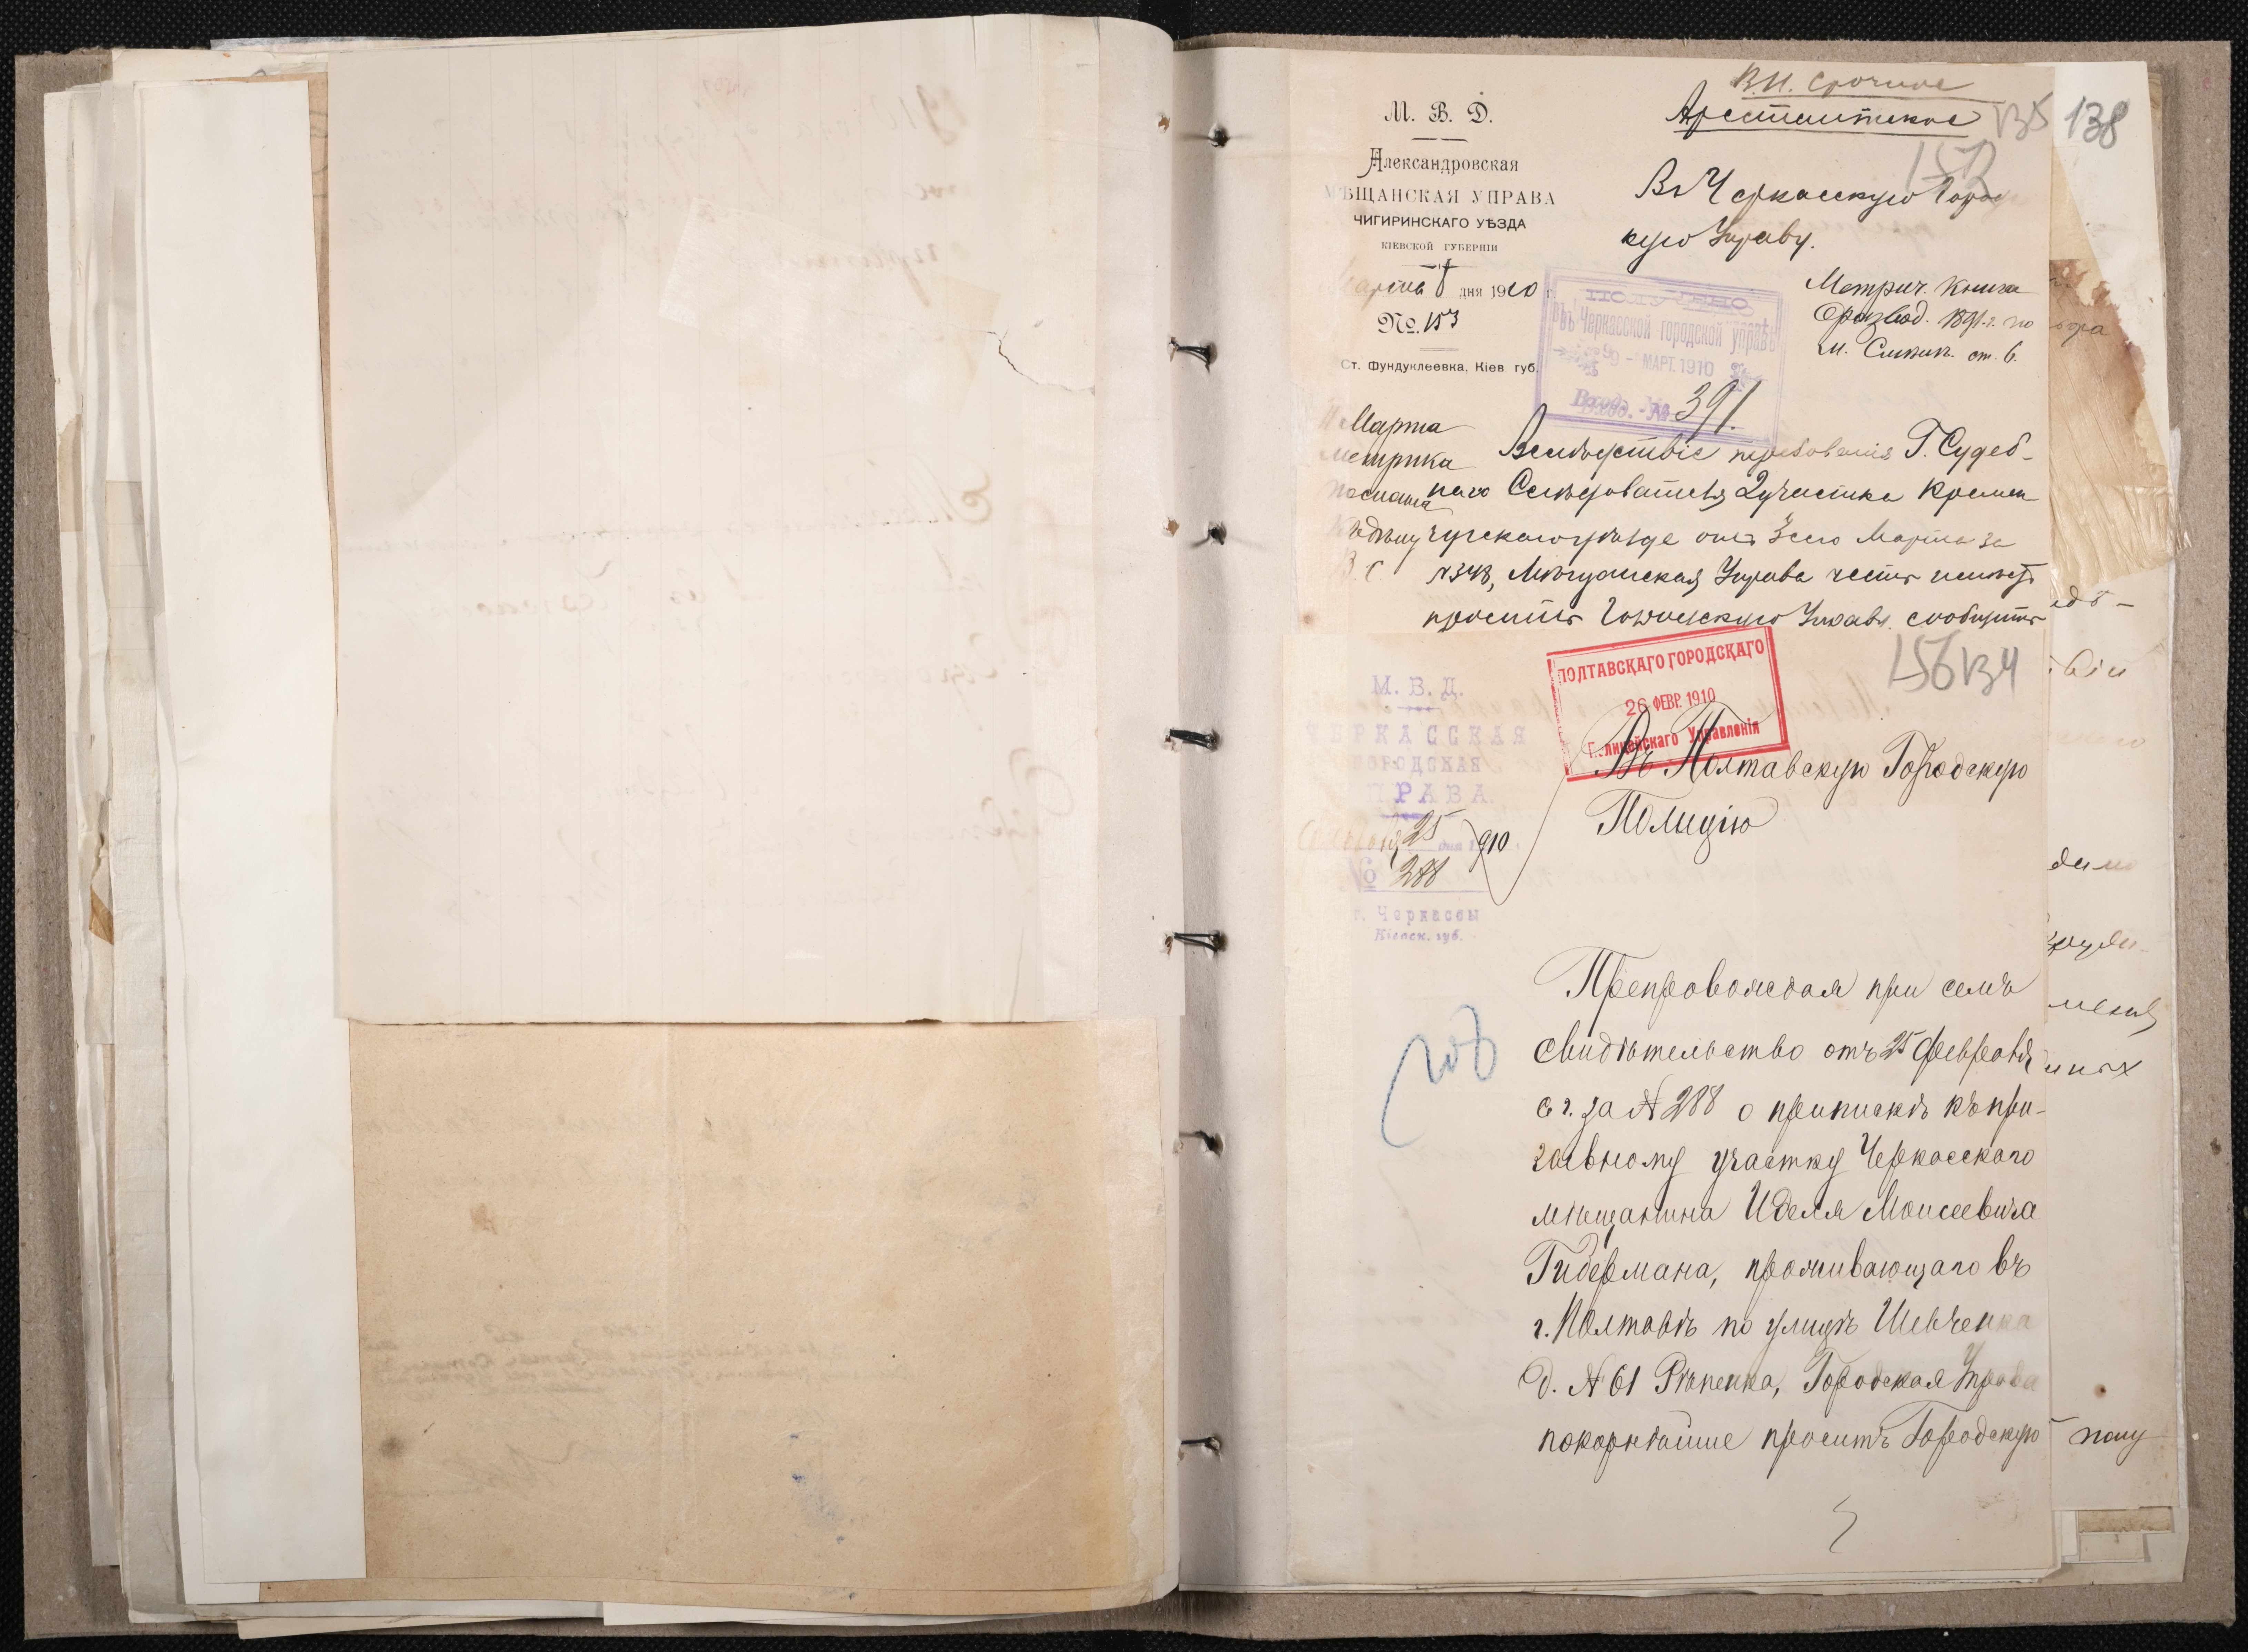 В.И. Срочное
Арестантское
135 138
М. В. Д.
Александровская
МѢЩАНСКАЯ УПРАВА
ЧИГИРИНСКАГО УѢЗДА
КІЕВСКОЙ ГУБЕРНІИ
Марта 8 дня 1910 г.
№ 153
Ст. Фундуклеевка, Кіев. губ.
Въ Черкасскую Город
кую Управу.
ПОЛУЧЕНО
въ Черкасской городской управѣ
9 - МАРТ. 1910
Вход. № 391.
Метрич. книга
О развод. 1891 г. по
м. ст. 6.
11 Марта
метрика
послана
В. С.
Вслѣдствіе требованія Г. Судеб-
наго Слѣдователя 2 участка Кремен
чугскаго уѣзда отъ 3 сего Марта за
№ 348, Мѣщанская Управа честь имѣетъ
проситъ Городскую Управу сообщить
156 134
ПОЛТАВСКАГО ГОРОДСКАГО
26 ФЕВР. 1910
Полицейскаго Управленія
М. В. Д.
ЧЕРКАССКАЯ
ГОРОДСКАЯ
УПРАВА
Февраля 25 дня 1910
№ 288
г. Черкассы
Кіевск. губ.
Въ Полтавскую Городскую
Полицію
Препровождая при семъ
свидѣтельство отъ 25 февраля
с. г. за № 288 о припискѣ къ при-
зывному участку Черкасскаго
мѣщанина Иделя Моисеевича
Гидермана, проживающаго въ
г. Полтавѣ по улицѣ Шевченка
д. № 61 Рѣпенка, Городская Управа
покорнѣйше проситъ Городскую
полу